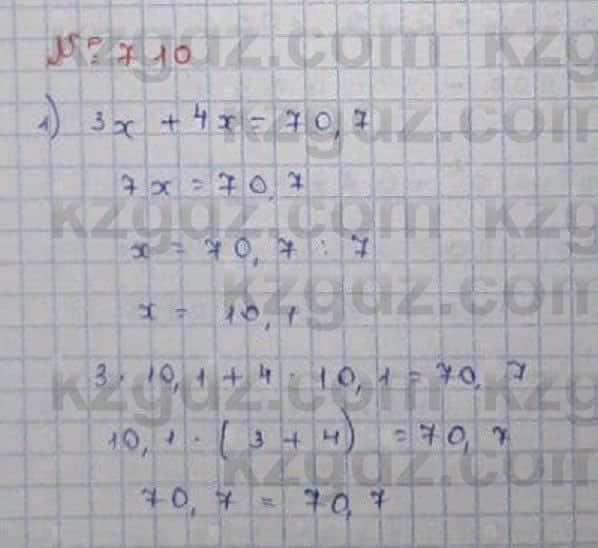 № 710
1) 3x + 4x = 70,7
7x = 70,7
x = 70,7 : 7
x = 10,1
3 · 10,1 + 4 · 10,1 = 70,7
10,1 · (3 + 4) = 70,7
70,7 = 70,7
kzgdz.com
kzgdz.com
kzgdz.com
kzgdz.com
kzgdz.com
kzgdz.com